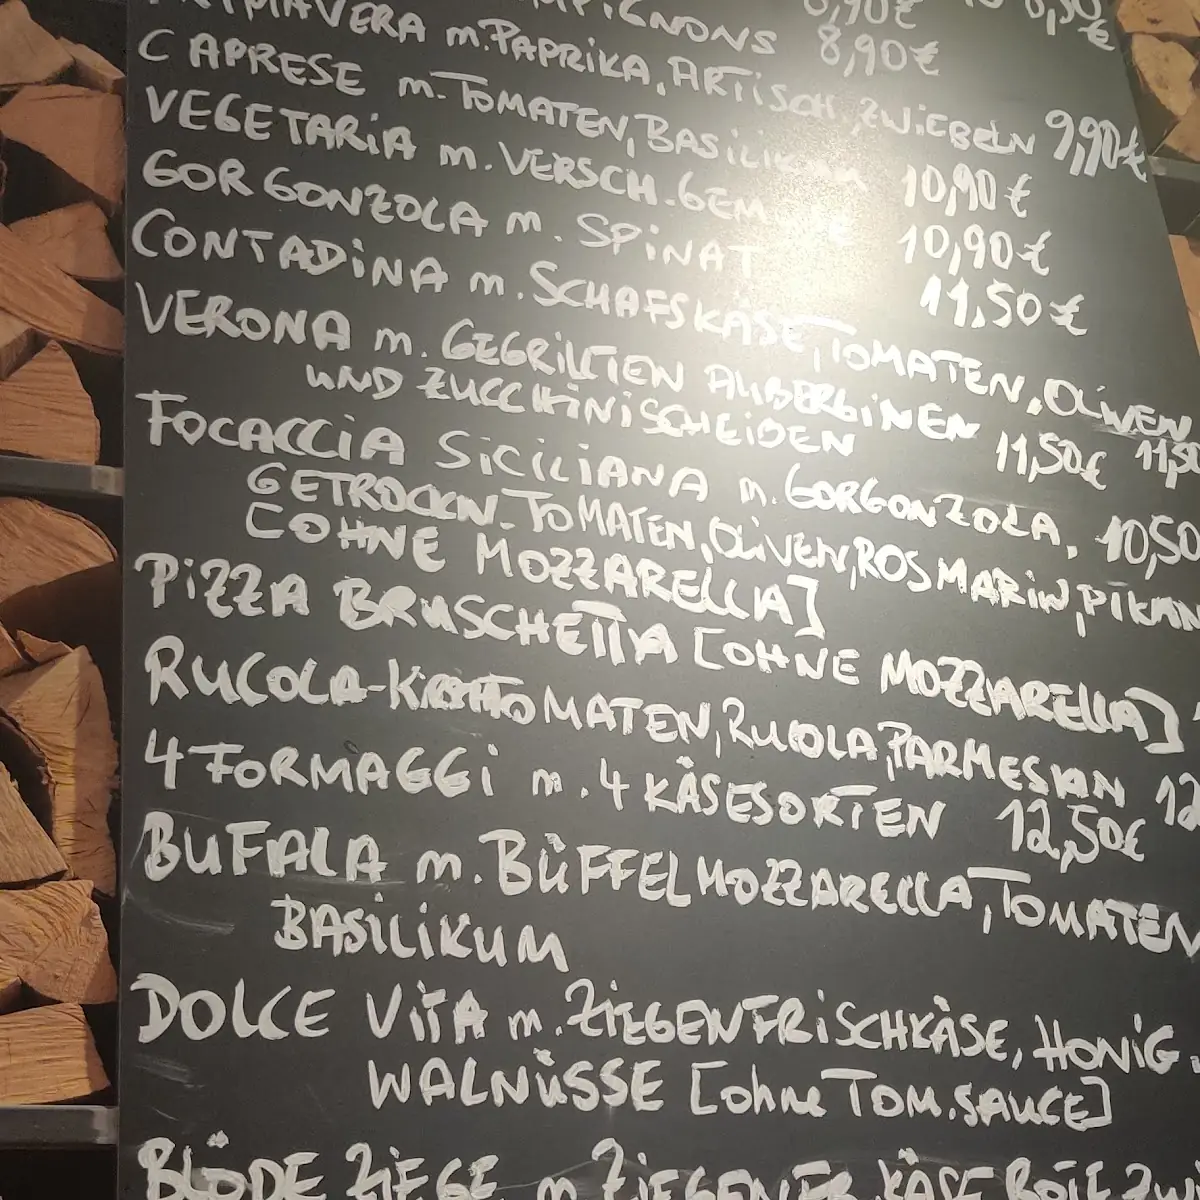 PRIMAVERA m. PAPRIKA, ARTISCH, ZWIEBELN 9,90€
CAPRESE m. TOMATEN, BASILIKUM 10,90€
VEGETARIA m. VERSCH. GEM 10,90€
GORGONZOLA m. SPINAT 11,50€
CONTADINA m. SCHAFSKÄSE, TOMATEN, OLIVEN 11,50
VERONA m. GEGRILLTEN AUBERGINEN
UND ZUCCHINISCHEIBEN 11,50€
FOCACCIA SICILIANA m. GORGONZOLA, 10,50
GETROCKN. TOMATEN, OLIVEN, ROSMARIN, PIKAN
[OHNE MOZZARELLA]
PIZZA BRUSCHETTA [OHNE MOZZARELLA]
RUCOLA - TOMATEN, RUCOLA, PARMESAN 12
4 FORMAGGI m. 4 KÄSESORTEN 12,50€
BUFALA m. BÜFFELMOZZARELLA, TOMATEN
BASILIKUM
DOLCE VITA m. ZIEGENFRISCHKÄSE, HONIG,
WALNÜSSE [ohne TOM.SAUCE]
BLÖDE ZIEGE m. ZIEGENFR.KÄSE ROTE ZW